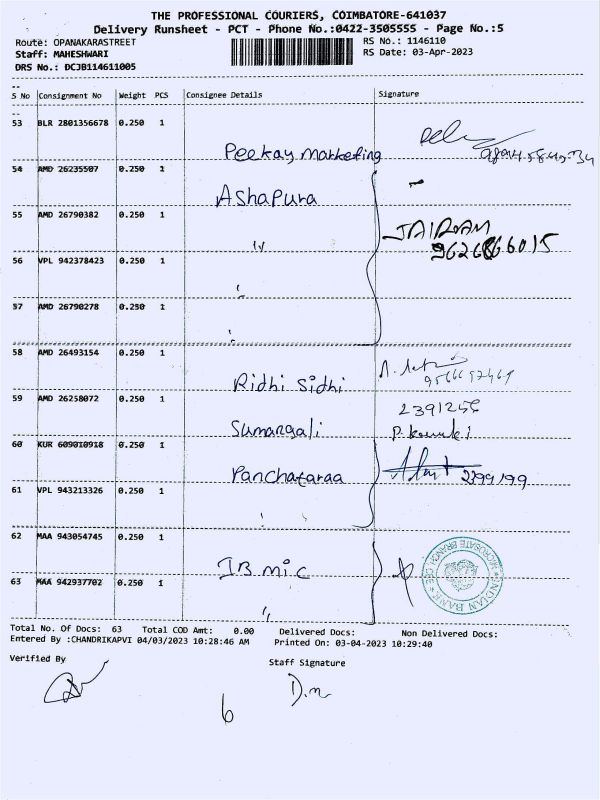 THE PROFESSIONAL COURIERS, COIMBATORE-641037
Delivery Runsheet - PCT - Phone No.:0422-3505555 - Page No.:5
Route: OPANAKARASTREET
RS No.: 1146110
Staff: MAHESHWARI
RS Date: 03-Apr-2023
DRS No.: DCJB114611005
S No Consignment No Weight PCS Consignee Details Signature
53 BLR 2801356678 0.250 1
Peekay marketing
54 AMD 26235507 0.250 1
Ashapura
55 AMD 26790382 0.250 1
JAIRAM
56 VPL 942378423 0.250 1
57 AMD 26790278 0.250 1
58 AMD 26493154 0.250 1
Ridhi Sidhi
59 AMD 26258072 0.250 1
Sumangali
60 KUR 609010918 0.250 1
Panchataraa 2399199
61 VPL 943213326 0.250 1
62 MAA 943054745 0.250 1
IB mic
63 MAA 942937702 0.250 1
INDIAN BANK
Total No. Of Docs: 63 Total COD Amt: 0.00 Delivered Docs: Non Delivered Docs:
Entered By :CHANDRIKAPVI 04/03/2023 10:28:46 AM Printed On: 03-04-2023 10:29:40
Verified By
Staff Signature
D.m
6